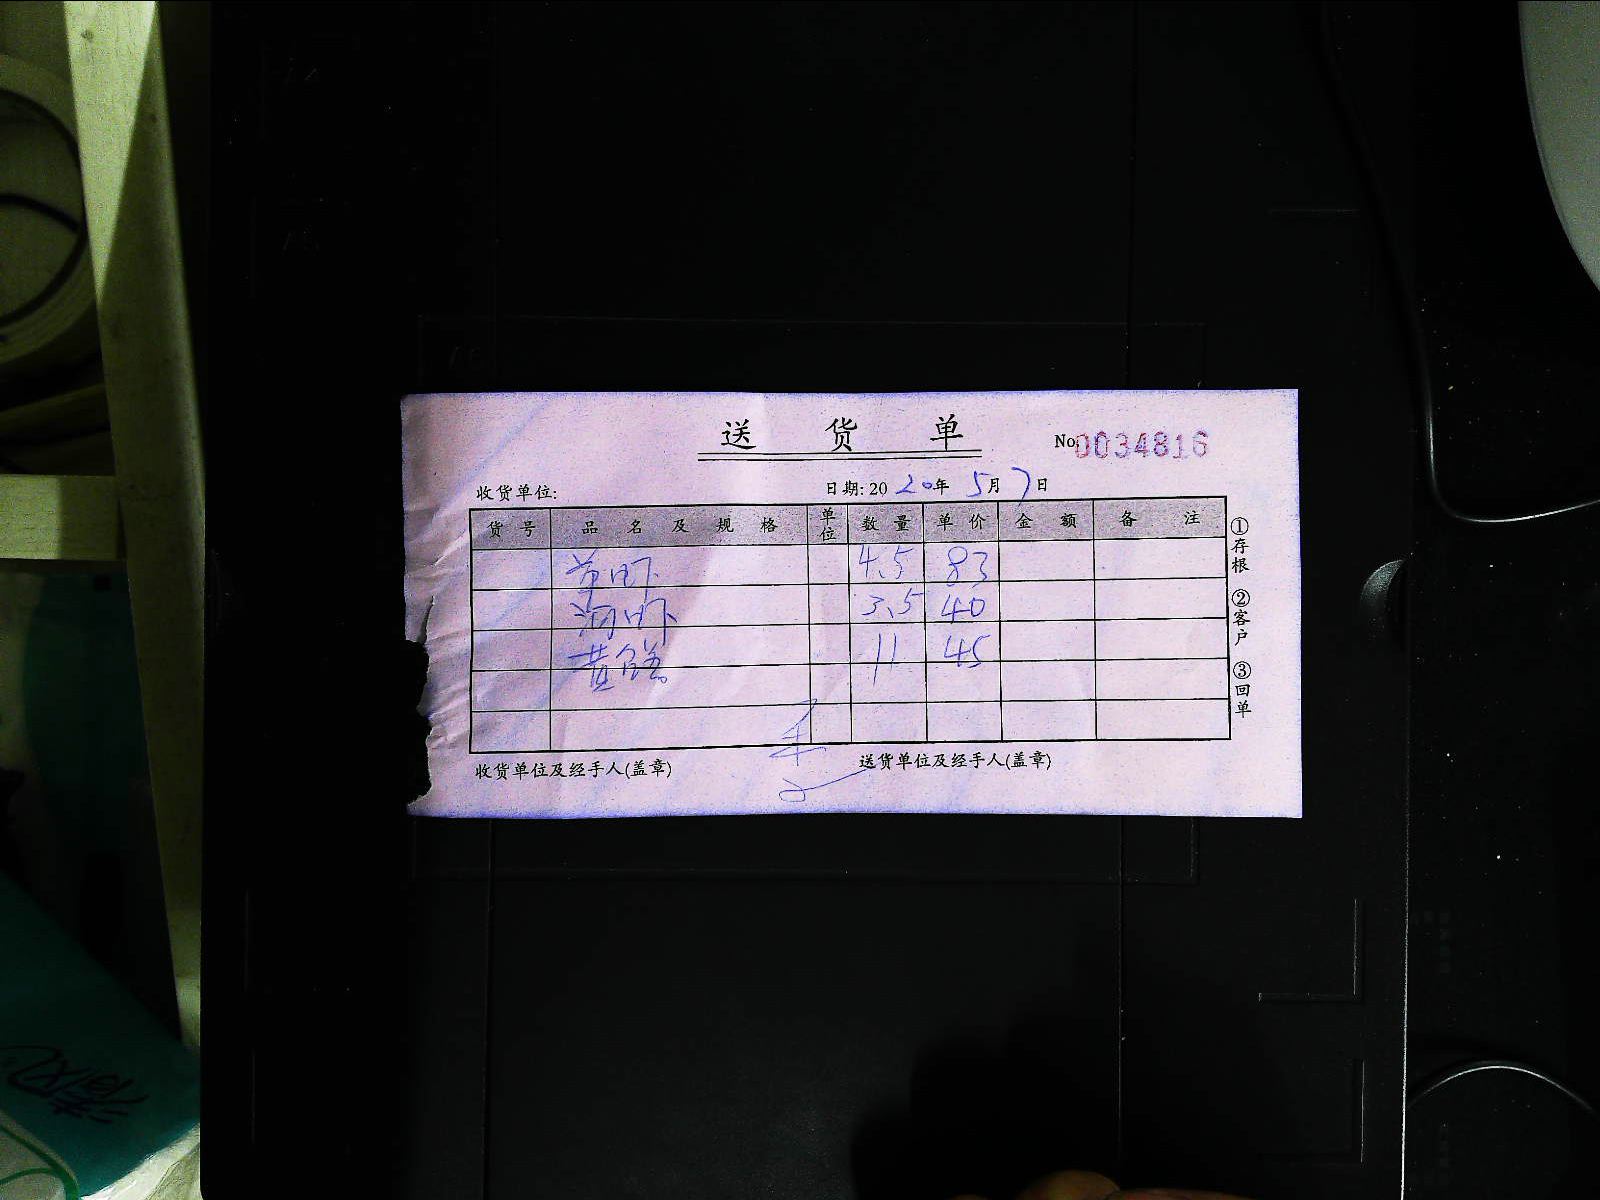 送 货 单
No 0034816
收货单位: 日期: 2020年 5月 7日
货 号 品 名 及 规 格 单位 数 量 单 价 金 额 备 注
草虾 4.5 83
河虾 3.5 40
黄鳝 11 45
①存根 ②客户 ③回单
收货单位及经手人(盖章) 送货单位及经手人(盖章)